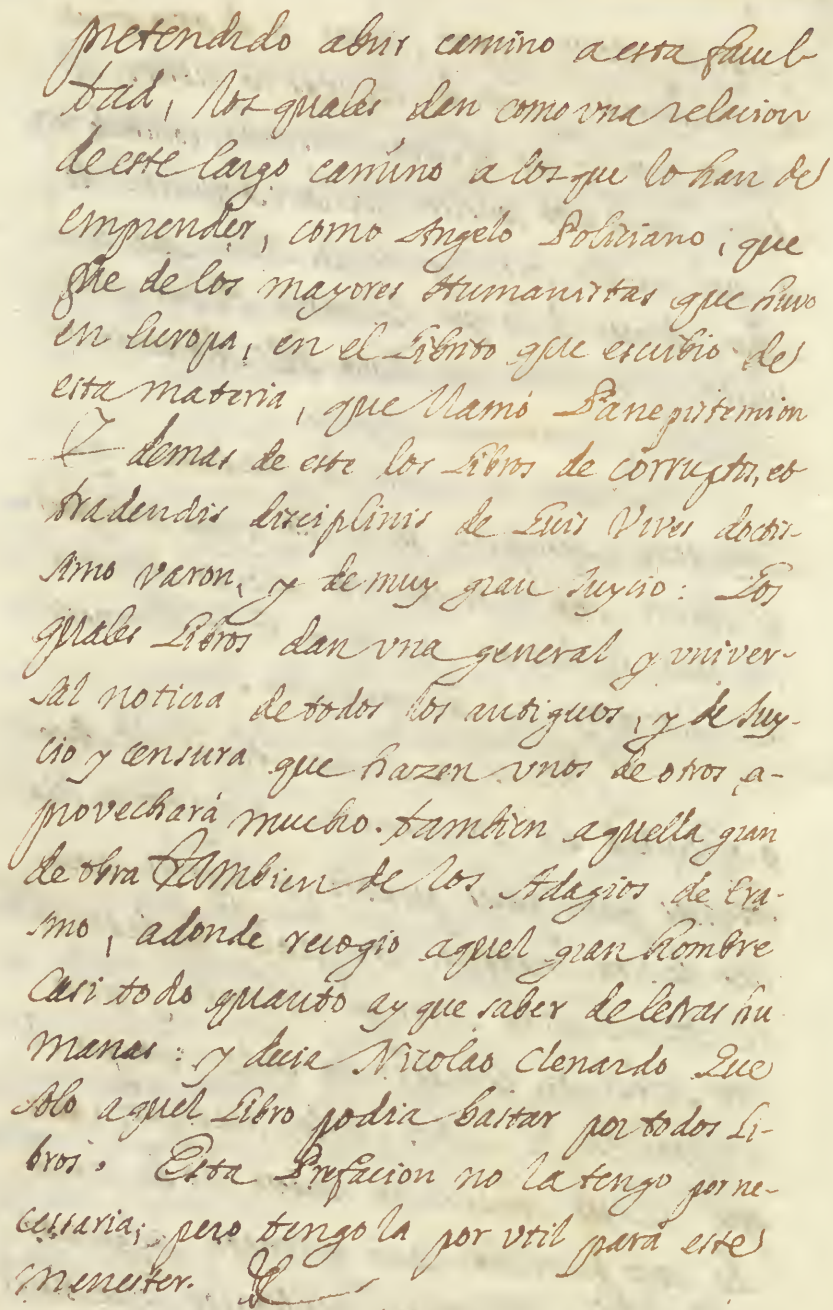 pretendido abrir camino a esta facul-
tad, los quales dan como vna relacion
de este largo camino a los que lo han de
emprender, como Angelo Policiano, que
fue de los mayores Humanistas que huvo
en Europa, en el Librito que escribio de
esta materia, que llamó Panepistemion
Y demas de este los Libros de corruptis, et
tradendis disciplinis de Luis Vives doctis-
simo varon, y de muy gran juycio: Los
quales Libros dan vna general y vniver-
sal noticia de todos los antiguos, y de juy-
cio y censura que hazen vnos de otros, a-
provechará mucho. tambien aquella gran
de obra tambien de los Adagios de Era-
smo, adonde recogio aquel gran hombre
casi todo quanto ay que saber de letras hu
manas: y decia Nicolao Clenardo Que
solo aquel Libro podia bastar por todos Li-
bros. Esta Prefacion no la tengo por ne-
cessaria; pero tengola por vtil para este
menester.